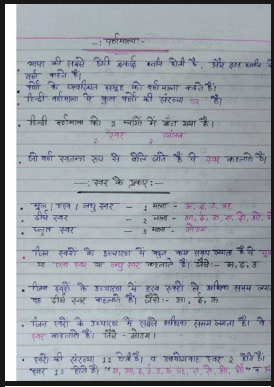 -: वर्णमाला :-
भाषा की सबसे छोटी इकाई ध्वनि होती है, और इस ध्वनि
वर्ण कहते हैं।
वर्णों के व्यवस्थित समूह को वर्णमाला कहते हैं।
हिन्दी वर्णमाला में कुल वर्णों की संख्या 52 है।
हिन्दी वर्णमाला को 2 भागों में बाँटा गया है।
स्वर व्यंजन
जो वर्ण स्वतन्त्र रूप से बोले जाते हैं वे स्वर कहलाते हैं।
-: स्वर के प्रकार :-
मूल / ह्रस्व / लघु स्वर - 1 मात्रा - अ, इ, उ, ऋ
दीर्घ स्वर - 2 मात्रा - आ, ई, ऊ, ए, ऐ, ओ, औ
प्लुत स्वर - 3 मात्रा - ओ३म
जिन स्वरों के उच्चारण में कम समय लगता है वे
या ह्रस्व स्वर या लघु स्वर कहलाते हैं। जैसे:- अ, इ, उ
जिन स्वरों के उच्चारण में ह्रस्व स्वरों से अधिक समय
वह दीर्घ स्वर कहलाते हैं। जैसे - आ, ई, ऊ
जिन स्वरों के उच्चारण में सबसे अधिक समय लगता है। वे
स्वर कहलाते हैं। जैसे - ओ३म।
स्वरों की संख्या 11 होती है। व अयोगवाह स्वर 2 होते हैं।
स्वर 11 होते हैं।